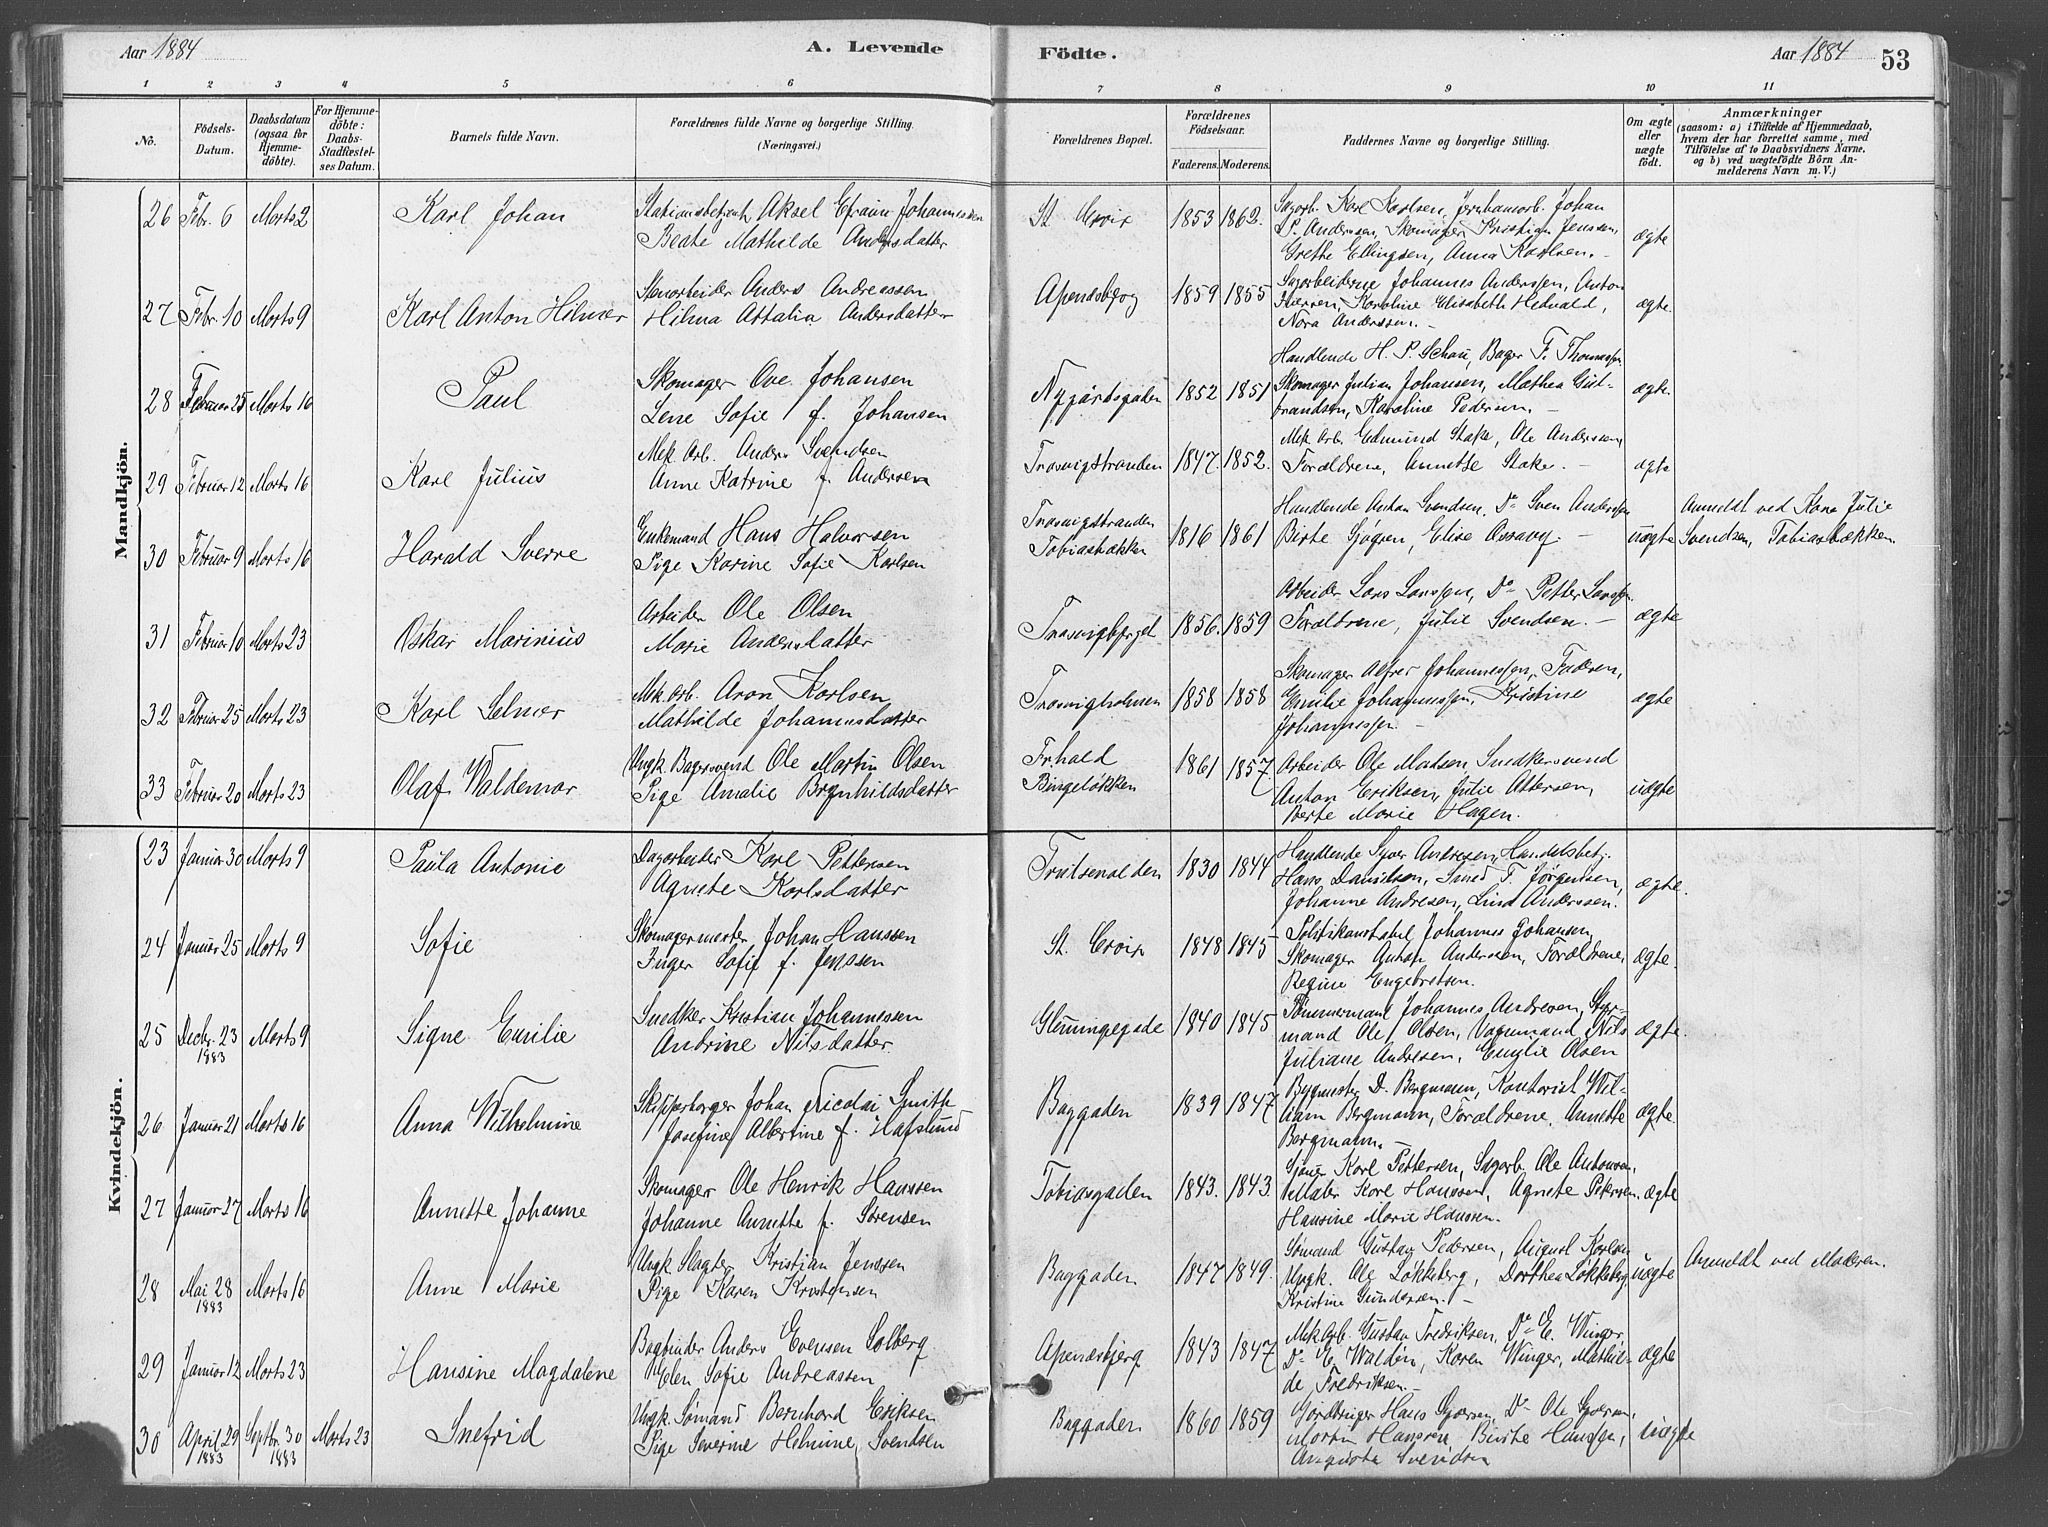 Aar 1884
A. Levende
Födte.
Aar 1884
53
1 2 3 4 5 6 7 8 9 10 11
No.
Födsels-Datum.
Daabsdatum (ogsaa for Hjemmedöbte).
For Hjemmedöbte: Daabs-Stadfæstelses Datum.
Barnets fulde Navn.
Forældrenes fulde Navne og borgerlige Stilling.
(Næringsvei.)
Forældrenes Bopæl.
Forældrenes Födselsaar.
Faderens. Moderens.
Faddernes Navne og borgerlige Stilling.
Om ægte eller uægte födt.
Anmærkninger
(saasom: a) i Tilfælde af Hjemmedaab,
hvem der har forrettet samme, med
Tilföielse af to Daabsvidners Navne,
og b) ved uægtefödte Börn Anmelderens Navn m. V.)
Mandkjön.
26 Febr. 6 Marts 2 Karl Johan
Stationsbetjent Aksel Efraim Johannessen
Beate Mathilde Andersdatter
St. Croix 1853 1862.
Sagarb. Karl Karlsen, Jernbanarb. Johan
P. Anderssen, Skomager Kristian Jenssen,
Grethe Ellingsen, Anna Karlsen.
ægte
27 Febr. 10 Marts 9 Karl Anton Hilmer
Stenarbeider Anders Andreassen
Hilma Attalia Andersdatter
1859 1855
Sagarbeiderne Johannes Anderssen, Anton
Karoline Elisabeth Hedvald,
Nora Anderssen.
ægte
28 Februar 25 Marts 16 Paul
Skomager Ove Johansen
Lene Sofie f. Johansen
Nygårdsgaden 1852 1851
Handlende H. P. Schau, Bager F. Thomassen
Skomager Julian Johansen, Mathea Gulbrandsen, Karoline Pedersen.
ægte
29 Februar 12 Marts 16 Karl Julius
Mek. Arb. Anders Svendsen
Anne Katrine f. Andersen
Trosvigstranden 1847 1852.
Mek. Arb. Edmund Stake, Ole Anderssen,
Forældrene, Annette Stake.
ægte
30 Februar 9 Marts 16 Harald Sverre
Enkemand Hans Halvorsen
Pige Karine Sofie Karlsen
Trosvigstranden
Tobiasbækken 1816 1861
Handlende Anton Svendsen, Do Sven Anderssen
Birte Sjøgren, Elise
uægte
Anmeldt ved Kana Julie
Svendsen, Tobiasbækken.
31 Februar 10 Marts 23 Oskar Marinius
Arbeider Ole Olsen
Marie Andersdatter
Trosvigbjerget 1856. 1859
Arbeider Lars Larssen, Do Petter Larssen
Forældrene, Julie Svendsen.
ægte
32 Februar 25 Marts 23 Karl Selmer
Mek. Arb. Aron Karlsen
Mathilde Johannesdatter
Trosvigholmen 1858 1858
Skomager Alfred Johannessen, Faderen,
Emilie Johannessen, Kristine
Johannessen.
ægte
33 Februar 20 Marts 23 Olaf Waldemar
Ungk. Bagersvend Ole Martin Olsen
Pige Amalie Brynhildsdatter
Frhald
Bingeløkken 1861 1857
Arbeider Ole Madsen Snedkersvend
Anton Eriksen, Julie Attersen,
Berte Marie Hagen.
uægte
Kvindekjön.
23 Januar 30 Marts 9 Paula Antonie
Dagarbeider Karl Pettersen
Agnete Karlsdatter
1830 1844
Handlende Syver Andresen, Handelsbetj.
Hans Danielsen, Smed T. Jørgensen,
Johanne Andresen, Lina Anderssen.
ægte.
24 Januar 25 Marts 9 Sofie
Skomagermester Johan Hanssen
Inger Sofie f. Jenssen
St. Croix 1848 1845
Politikonstabel Johannes Johansen,
Skomager Anton Anderssen, Forældrene,
Regine Engebretsen.
ægte.
25 Decbr. 23 1883 Marts 9 Signe Emilie
Snedker Kristian Johannesen
Andrine Nilsdatter
Glemmingegade 1840 1845
Tømmermand Johannes Andresen, Styrmand Ole Olsen, Vognmand Nils
Juliane Andresen, Emilie Olsen
ægte.
26 Januar 21 Marts 16 Anna Wilhelmine
Skipperborger Johan Nicolai Smith
Josefine Albertine f. Hafslund
Baggaden 1839 1847
Bygmester D. Bergmann, Kontorist William Bergmann, Forældrene, Annette
Bergmann.
ægte
27 Januar 27 Marts 16 Annette Johanne
Skomager Ole Henrik Hanssen
Johanne Annette f. Sørensen
Tobiasgaden 1843. 1843.
Karl Pettersen, Sagarb. Ole Antonsen,
Maler Karl Hanssen, Agnete Petersen,
Hansine Marie Hanssen.
ægte
28 Mai 28 1883 Marts 16 Anne Marie
Ungk. Slagter Kristian Jenssen
Pige Karen Kristensen
Baggaden 1847 1849.
Sømand Gustav Pedersen, August Karlsen
Ungk. Ole Løkkeberg, Dorthea Løkkeberg,
Kristine Gundersen.
uægte
Anmeldt ved Moderen.
29 Januar 12 Marts 23 Hansine Magdalene
Bogbinder Anders Evensen Solberg
Elen Sofie Andreassen
Apenæsbjerg 1843 1847
Mek. Arb. Gustav Fredriksen, Do E. Winger,
Do E. Waldén, Karen Winger, Mathilde Fredriksen.
ægte
30 April 29 1883 Septbr. 30 1883 Marts 23 Snefrid
Ungk. Sømand Bernhard Eriksen
Pige Severine Helmine Svendsen
Baggaden 1860 1859
Gördbruger Hans Do Ole
Martin Hanssen, Birthe Hanssen,
Augusta Svendsen
uægte